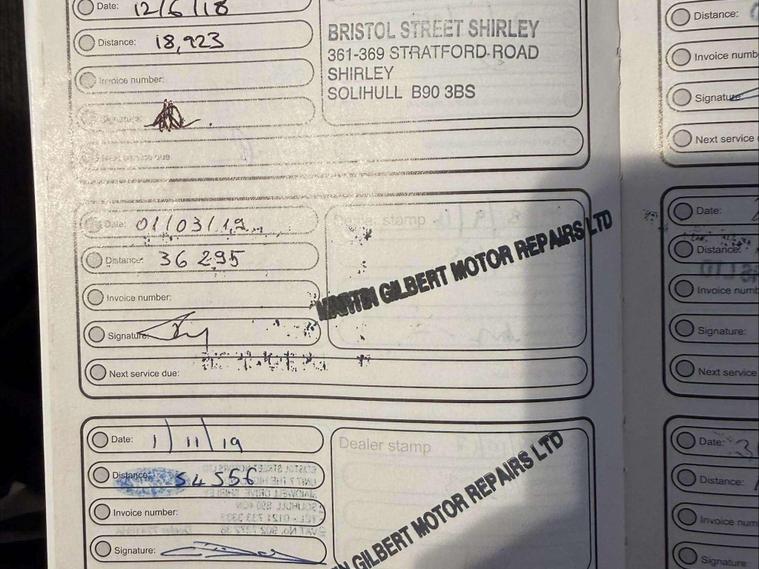 Date: 12/6/18
Distance: 18,923
Invoice number:
BRISTOL STREET SHIRLEY
361-369 STRATFORD ROAD
SHIRLEY
SOLIHULL B90 3BS
Signature:
Next service due
Date: 01/03/19
Distance: 36 295
Invoice number:
Signature:
Next service due:
Dealer stamp
MARTIN GILBERT MOTOR REPAIRS LTD
Date: 1/11/19
Distance: 54556
Invoice number:
Signature:
Dealer stamp
GILBERT MOTOR REPAIRS LTD
Distance:
Invoice numb
Signature
Next service
Date:
Distance:
Invoice numb
Signature:
Next service
Date: 3
Distance:
Invoice numb
Signature: